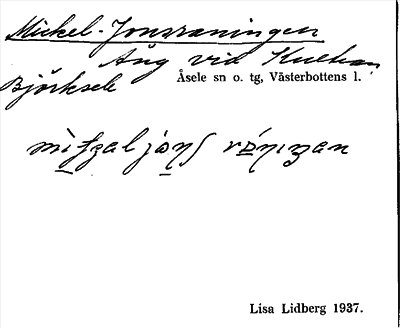 Mickel-Jonsraningen
Äng vid Kultran
Björksele
Åsele sn o. tg, Västerbottens l.
Lisa Lidberg 1937.